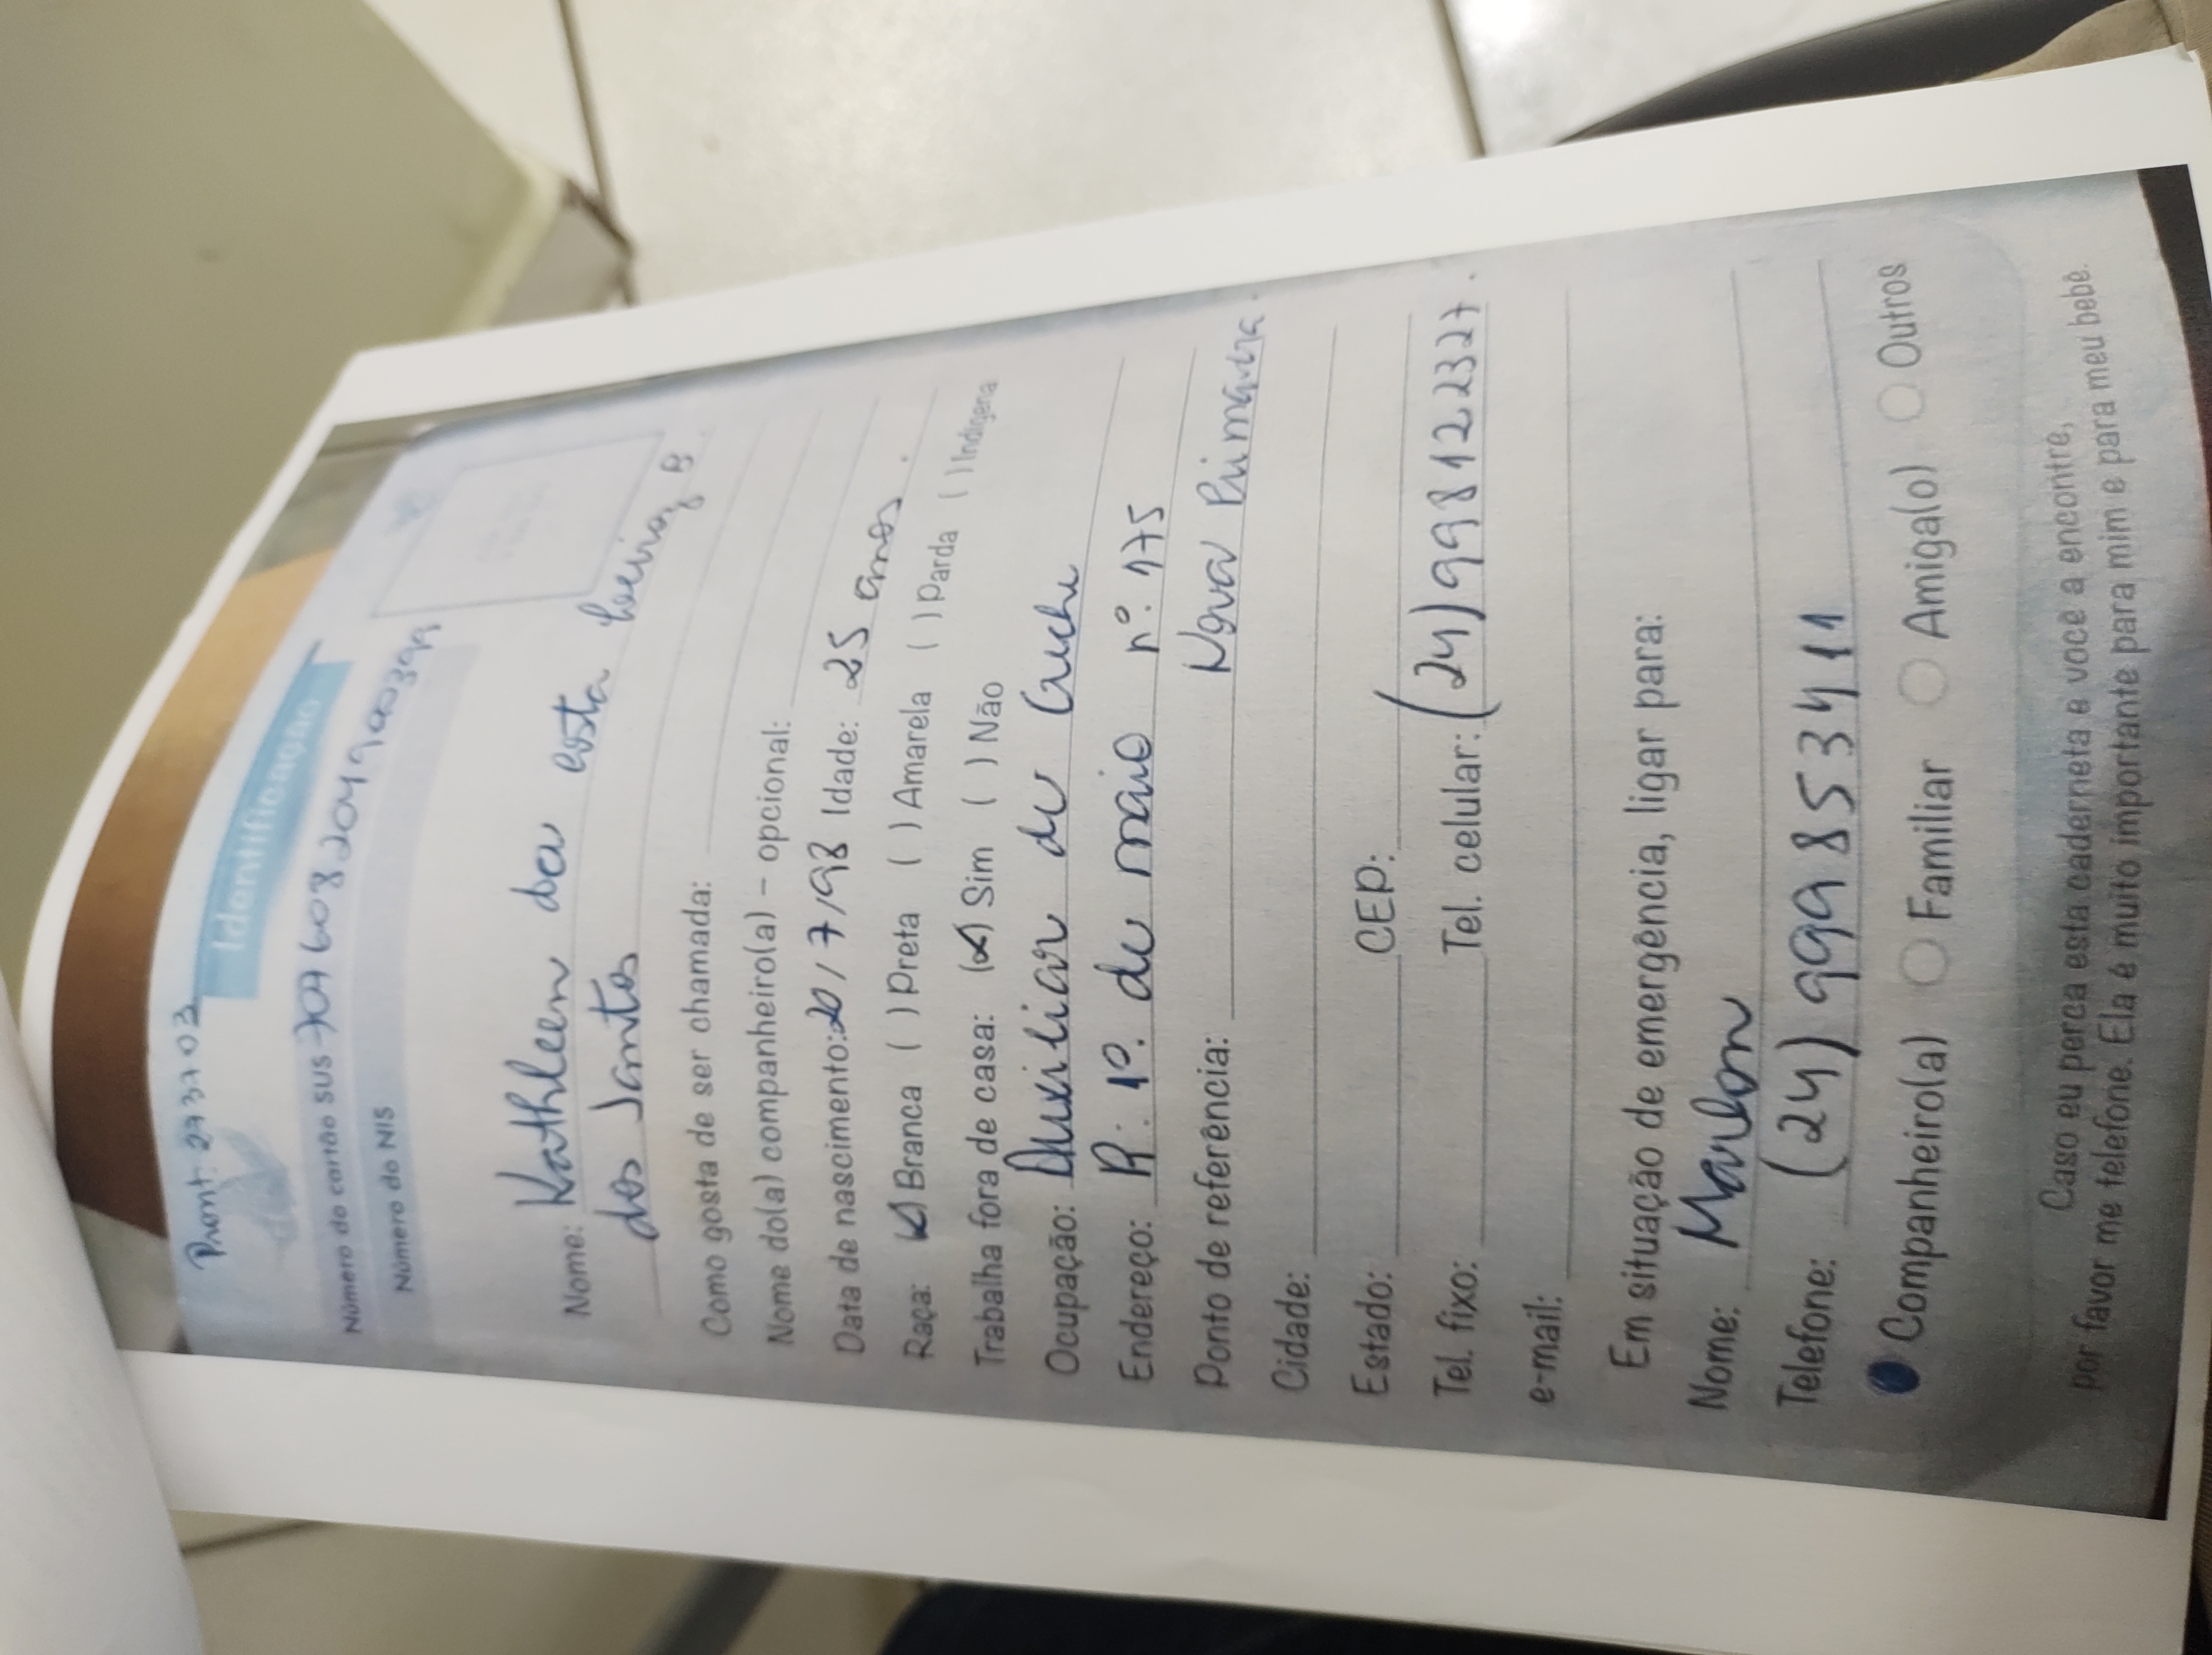 Pront: 273703
Identificação
Número do cartão SUS 707608204790399
Número do NIS
Nome: Kathleen da costa
dos Santos
Como gosta de ser chamada:
Nome do(a) companheiro(a) - opcional:
Data de nascimento: 20/7/98 Idade: 25 anos.
Raça: (x) Branca ( ) Preta ( ) Amarela ( ) Parda ( ) Indígena
Trabalha fora de casa: (x) Sim ( ) Não
Ocupação: Auxiliar de Creche
Endereço: R: 1º. de maio nº: 175
Ponto de referência: Nova Primavera.
Cidade:
Estado: CEP:
Tel. fixo: Tel. celular: (24) 998122327.
e-mail:
Em situação de emergência, ligar para:
Nome: Marlon
Telefone: (24) 999853411
Companheiro(a) Familiar Amiga(o) Outros
Caso eu perca esta caderneta e você a encontre,
por favor me telefone. Ela é muito importante para mim e para meu bebê.